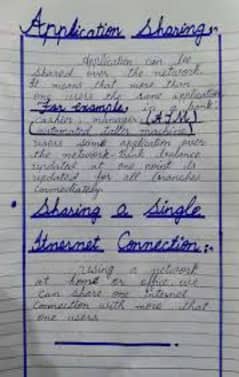 Application Sharing:-
Application can be
shared over the network.
It means that more than
one users the same application
For example, in a bank
cashier, manager, (ATM)
(automated taller machine)
users same application over
the network think balance
updated at one point is
updated for all branches
immediately.
Sharing a Single
Itnernet Connection:-
Using a network
at home or office we
can share one Internet
Connection with more that
one users.